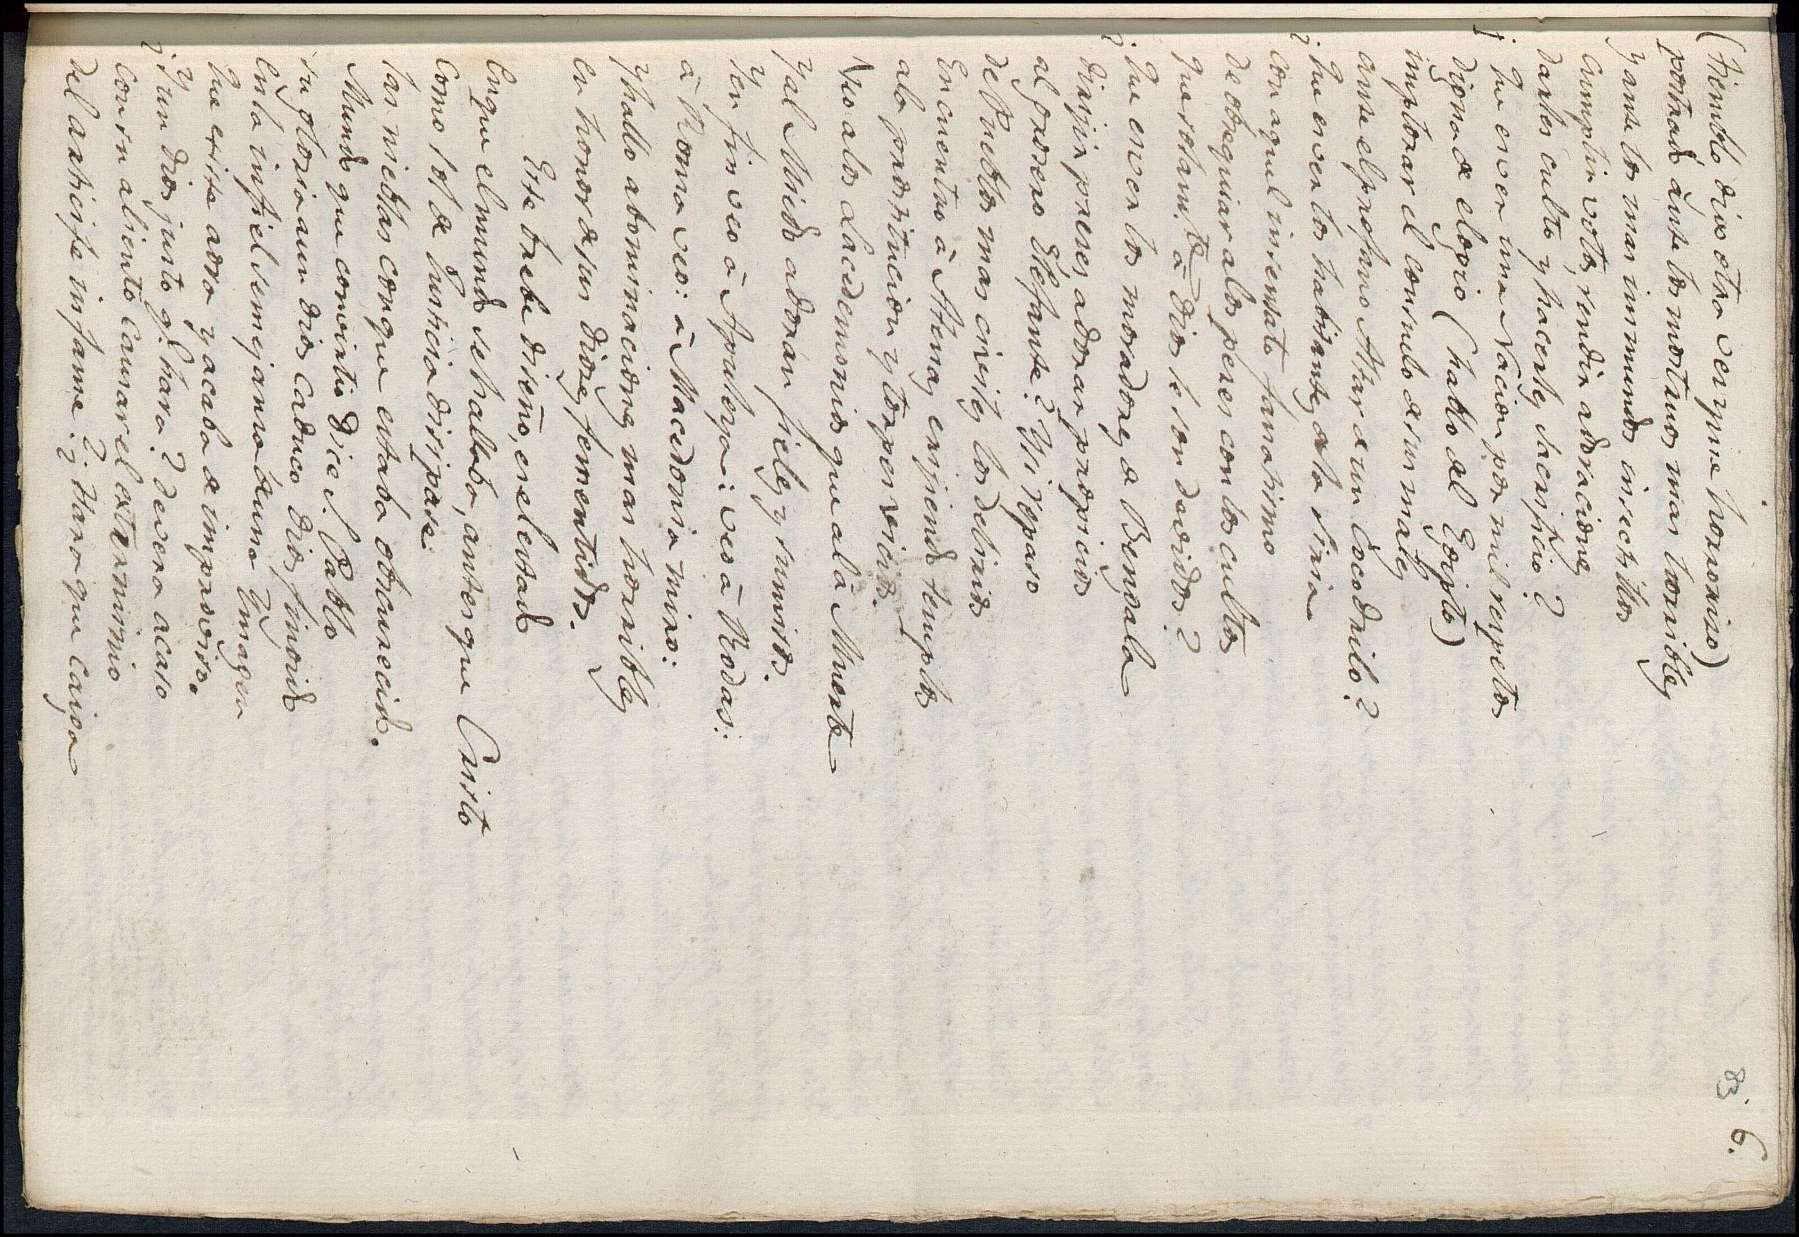 83. 6.
(tiemblo digo otra vez y me horroriso)
postrado ante los mostruos mas horribles
y ante los mas inmundos insectillos
cumplir votos, rendir adoraciones
darles culto y hacerles sacrificio?
¡que es ver una Nacion por mil respetos
digna de elogio (hablo del Egipto)
implorar el consuelo de sus males
ante el profano Altar de un Cocodrilo?
¡que es ver los habitantes de la Siria
con aquel insensato fanatismo
de obsequiar a los peces con los cultos
que solam.te a Dios le son devidos?
¡que es ver los moradores de Bengala
dirijir preces, adorar propicios
al grosero Elefante? Y si repaso
de Pueblos mas civiles los delirios
encuentro à Atenas erijiendo templos
a la prostitucion y torpes vicios.
Veo a los Lacedemonios que a la Muerte
y al Miedo adoran fieles y sumisos.
Y en fin veo à : veo à Rodas:
à Roma veo: à Macedonia miro:
y hallo abominaciones mas horribles
en honor de sus Dioses fementidos.
Este debe diseño, es el estado
en que el mundo se hallaba, antes que Cristo
como sol de Justicia disipase
las nieblas con que estaba obscurecido.
Mundo que convirtio dice S. Pablo
su gloria a un dios caduco dios finjido
en la infiel semejansa de una Imagen
que exista aora y acaba de improviso.
¿y un Dios justo q.e hara? devera acaso
con su aliento causar el exterminio
del artifise infame? ¿Hara que caiga